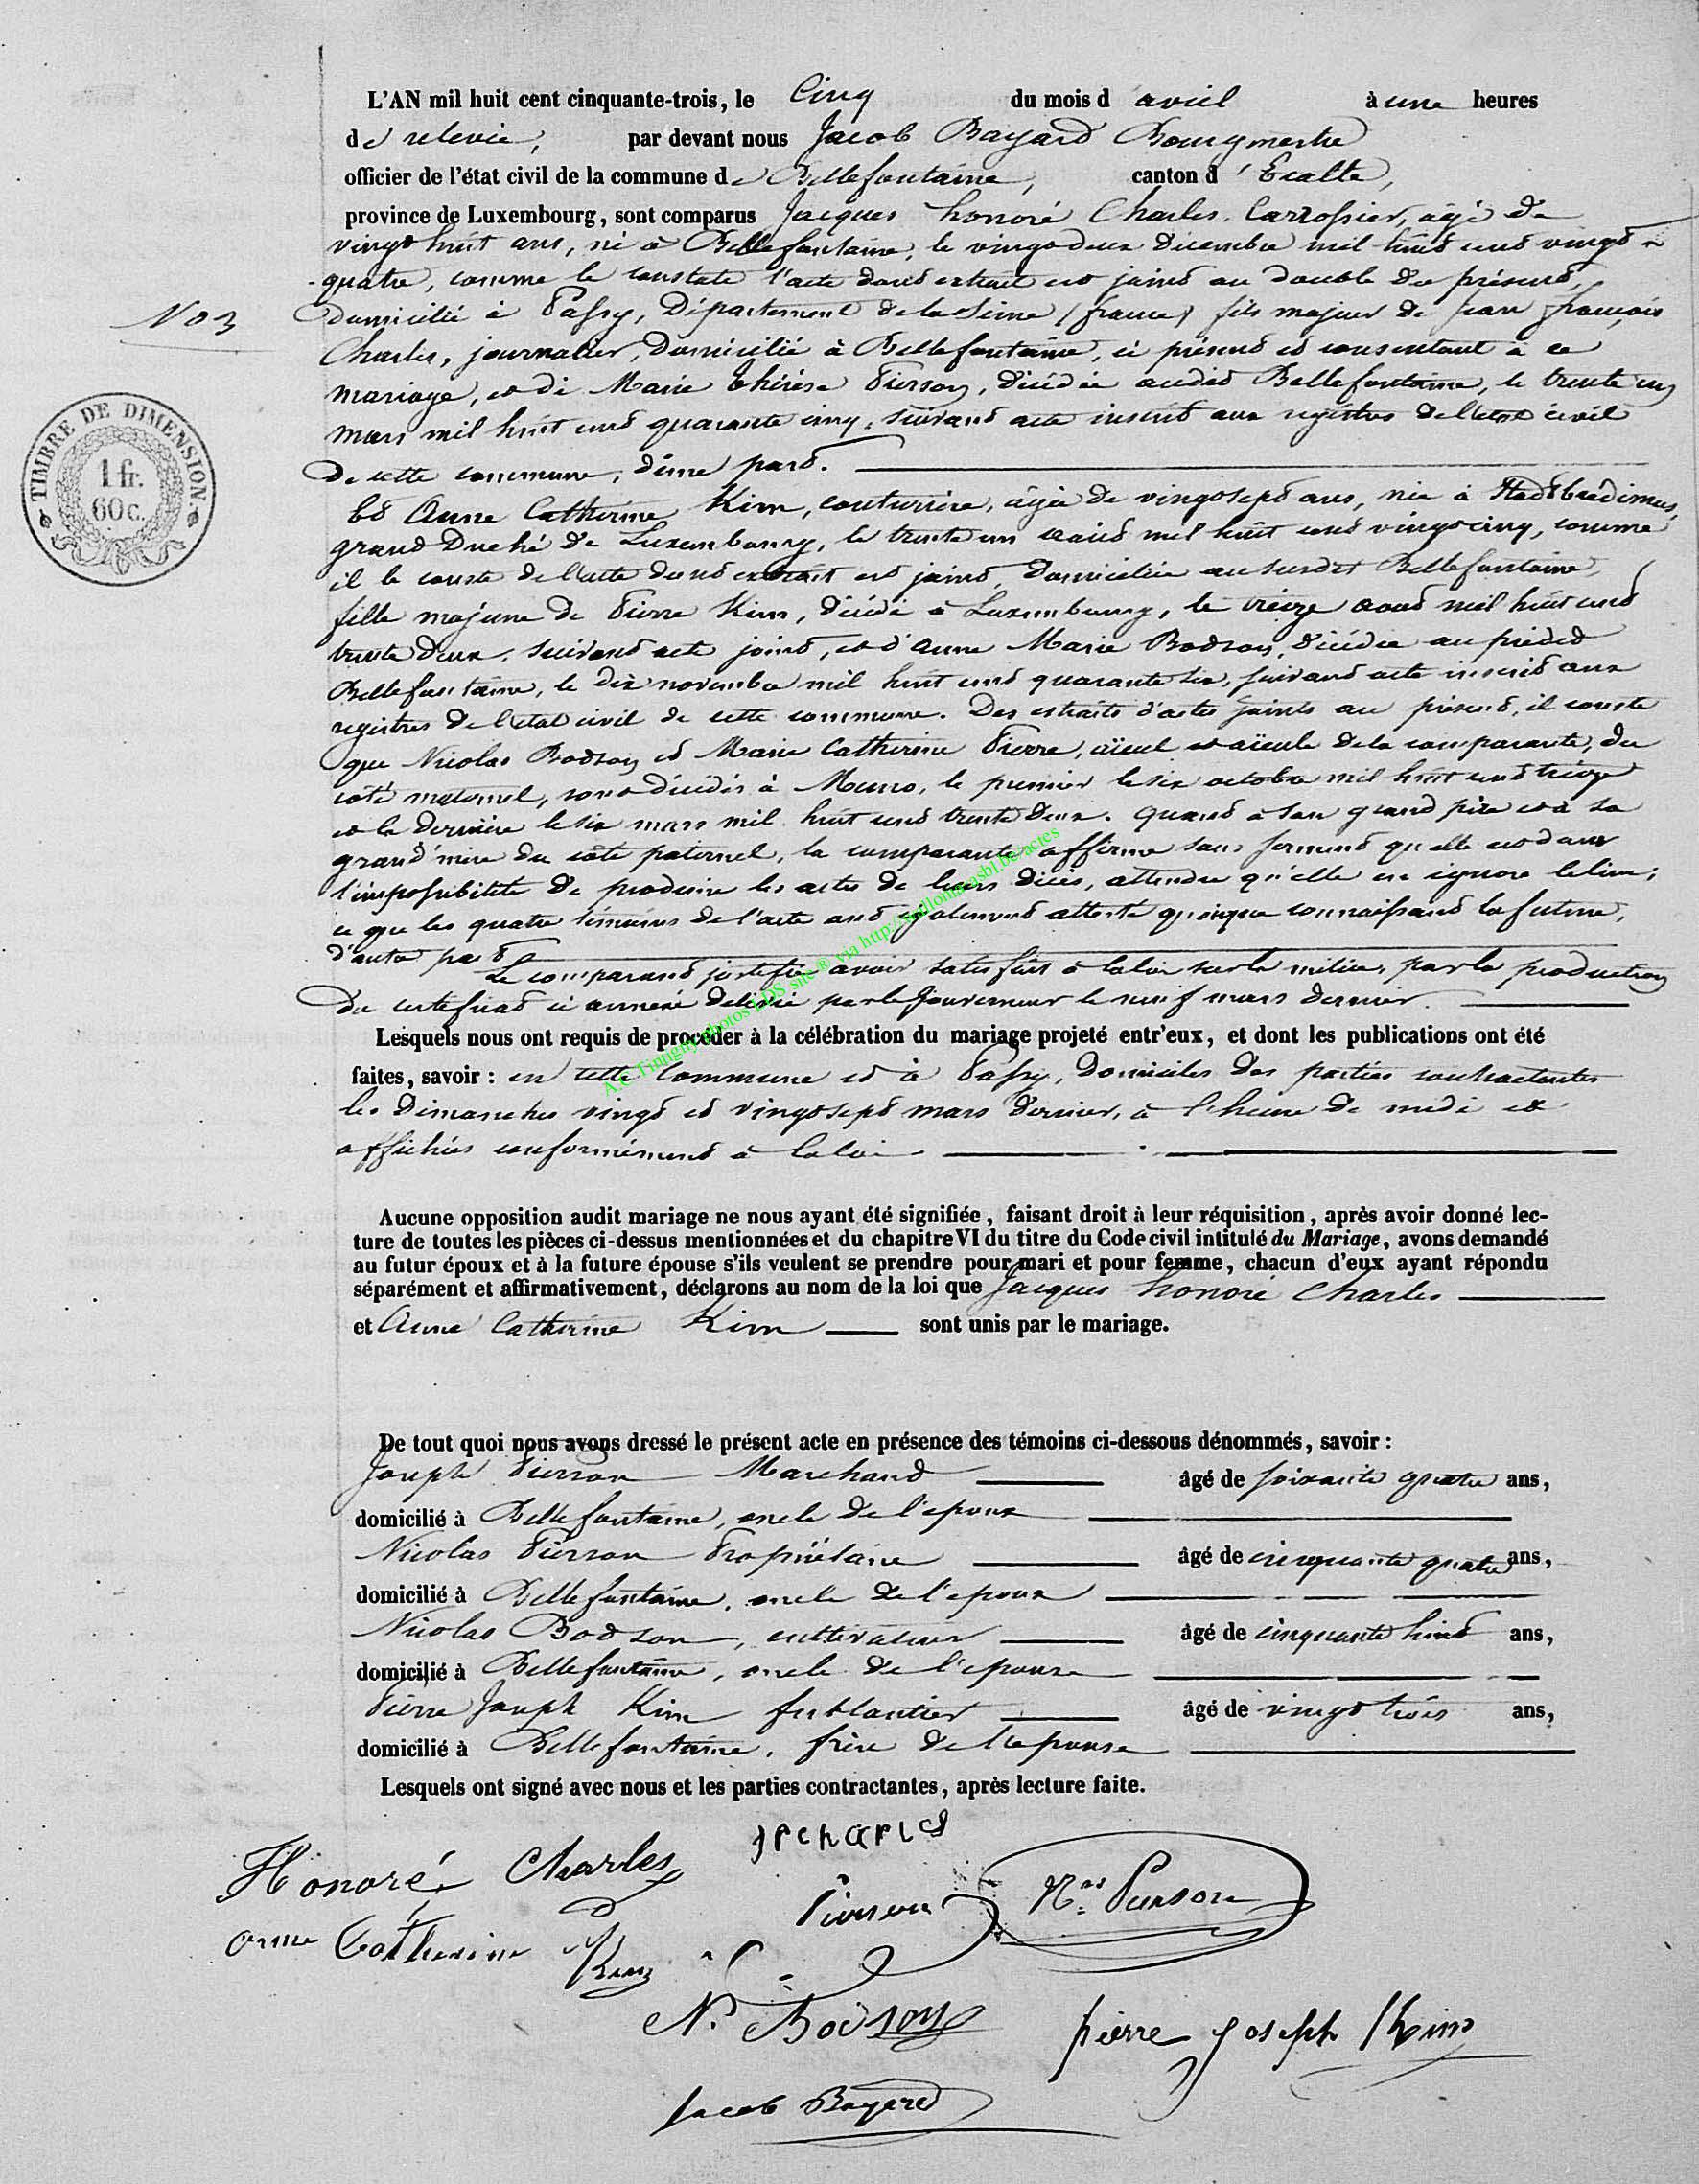 L'AN mil huit cent cinquante-trois, le Cinq du mois d avril à une heures
de relevée, par devant nous Jacob Bayard Bourgmestre
officier de l'état civil de la commune de Bellefontaine, canton d'Etalle,
province de Luxembourg, sont comparus Jacques honoré Charles, Carrossier, âgé de
vingt huit ans, né à Bellefontaine, le vingt deux Décembre mil huit cent vingt
quatre, comme le constate l'acte dont extrait est joint au double du présent,
No 3
domicilié à Passy, Département de la Seine (france) fils majeur de Jean françois
Charles, journalier, domicilié à Bellefontaine, ci présent et consentant à ce
mariage, et de Marie thérèse Pierson, décédée audit Bellefontaine, le trente un
mars mil huit cent quarante cinq, suivant acte inscrit aux registres de l'état civil
de cette commune, d'une part.
TIMBRE DE DIMENSION.
1 fr.
60 c.
Et Anne Catherine Kirn, couturière, âgée de vingt sept ans, née à Stadtbredimus,
grand Duché de Luxembourg, le trente un août mil huit cent vingt cinq, comme
il le conste de l'acte dont extrait est joint, Domiciliée au susdit Bellefontaine,
fille majeure de Pierre Kirn, décédé à Luxembourg, le treize août mil huit cent
trente deux, suivant acte joint, et d'Anne Marie Bodson, décédée au prédit
Bellefontaine, le dix novembre mil huit cent quarante six, suivant acte inscrit aux
registres de l'état civil de cette commune. Des extraits d'actes joints au présent, il conste
que Nicolas Bodson et Marie Catherine Pierre, aïeul et aïeule de la comparante, du
côté maternel, sont décédés à Muno, le premier le six octobre mil huit cent treize
et la dernière le six mars mil huit cent trente deux. Quand à son grand père et à sa
grand'mère du côté paternel, la comparante affirme sous serment qu'elle est dans
l'impossibilité de produire les actes de leurs décès, attendu qu'elle en ignore le lieu;
ce que les quatre témoins de l'acte ont également attesté quoique connaissant la future,
d'autre part
Le comparant justifie avoir satisfait à la loi sur la milice, par la production
du certificat ci annexé délivré par le Gouverneur le neuf mars dernier.
A.C. Tintigny photos LDS site ® via http://sadloma-asbl.be/actes
Lesquels nous ont requis de procéder à la célébration du mariage projeté entr'eux, et dont les publications ont été
faites, savoir : en cette Commune et à Passy, domiciles des parties contractantes
les Dimanches vingt et vingt sept mars dernier, à l'heure de midi et
affichés conformément à la loi
Aucune opposition audit mariage ne nous ayant été signifiée, faisant droit à leur réquisition, après avoir donné lec-
ture de toutes les pièces ci-dessus mentionnées et du chapitre VI du titre du Code civil intitulé du Mariage, avons demandé
au futur époux et à la future épouse s'ils veulent se prendre pour mari et pour femme, chacun d'eux ayant répondu
séparément et affirmativement, déclarons au nom de la loi que Jacques honoré Charles
et Anne Catherine Kirn sont unis par le mariage.
De tout quoi nous avons dressé le présent acte en présence des témoins ci-dessous dénommés, savoir :
Joseph Pierson Marchand âgé de soixante quatre ans,
domicilié à Bellefontaine, oncle de l'époux
Nicolas Pierson Propriétaire âgé de cinquante quatre ans,
domicilié à Bellefontaine, oncle de l'époux
Nicolas Bodson, cultivateur âgé de cinquante huit ans,
domicilié à Bellefontaine, oncle de l'épouse
Pierre Joseph Kirn ferblantier âgé de vingt trois ans,
domicilié à Bellefontaine, frère de l'épouse
Lesquels ont signé avec nous et les parties contractantes, après lecture faite.
Honoré Charles jfcharles
Pierson Nas Pierson
anne Catherine Kirn
N. Bodson pierre joseph Kirn
Jacob Bayard